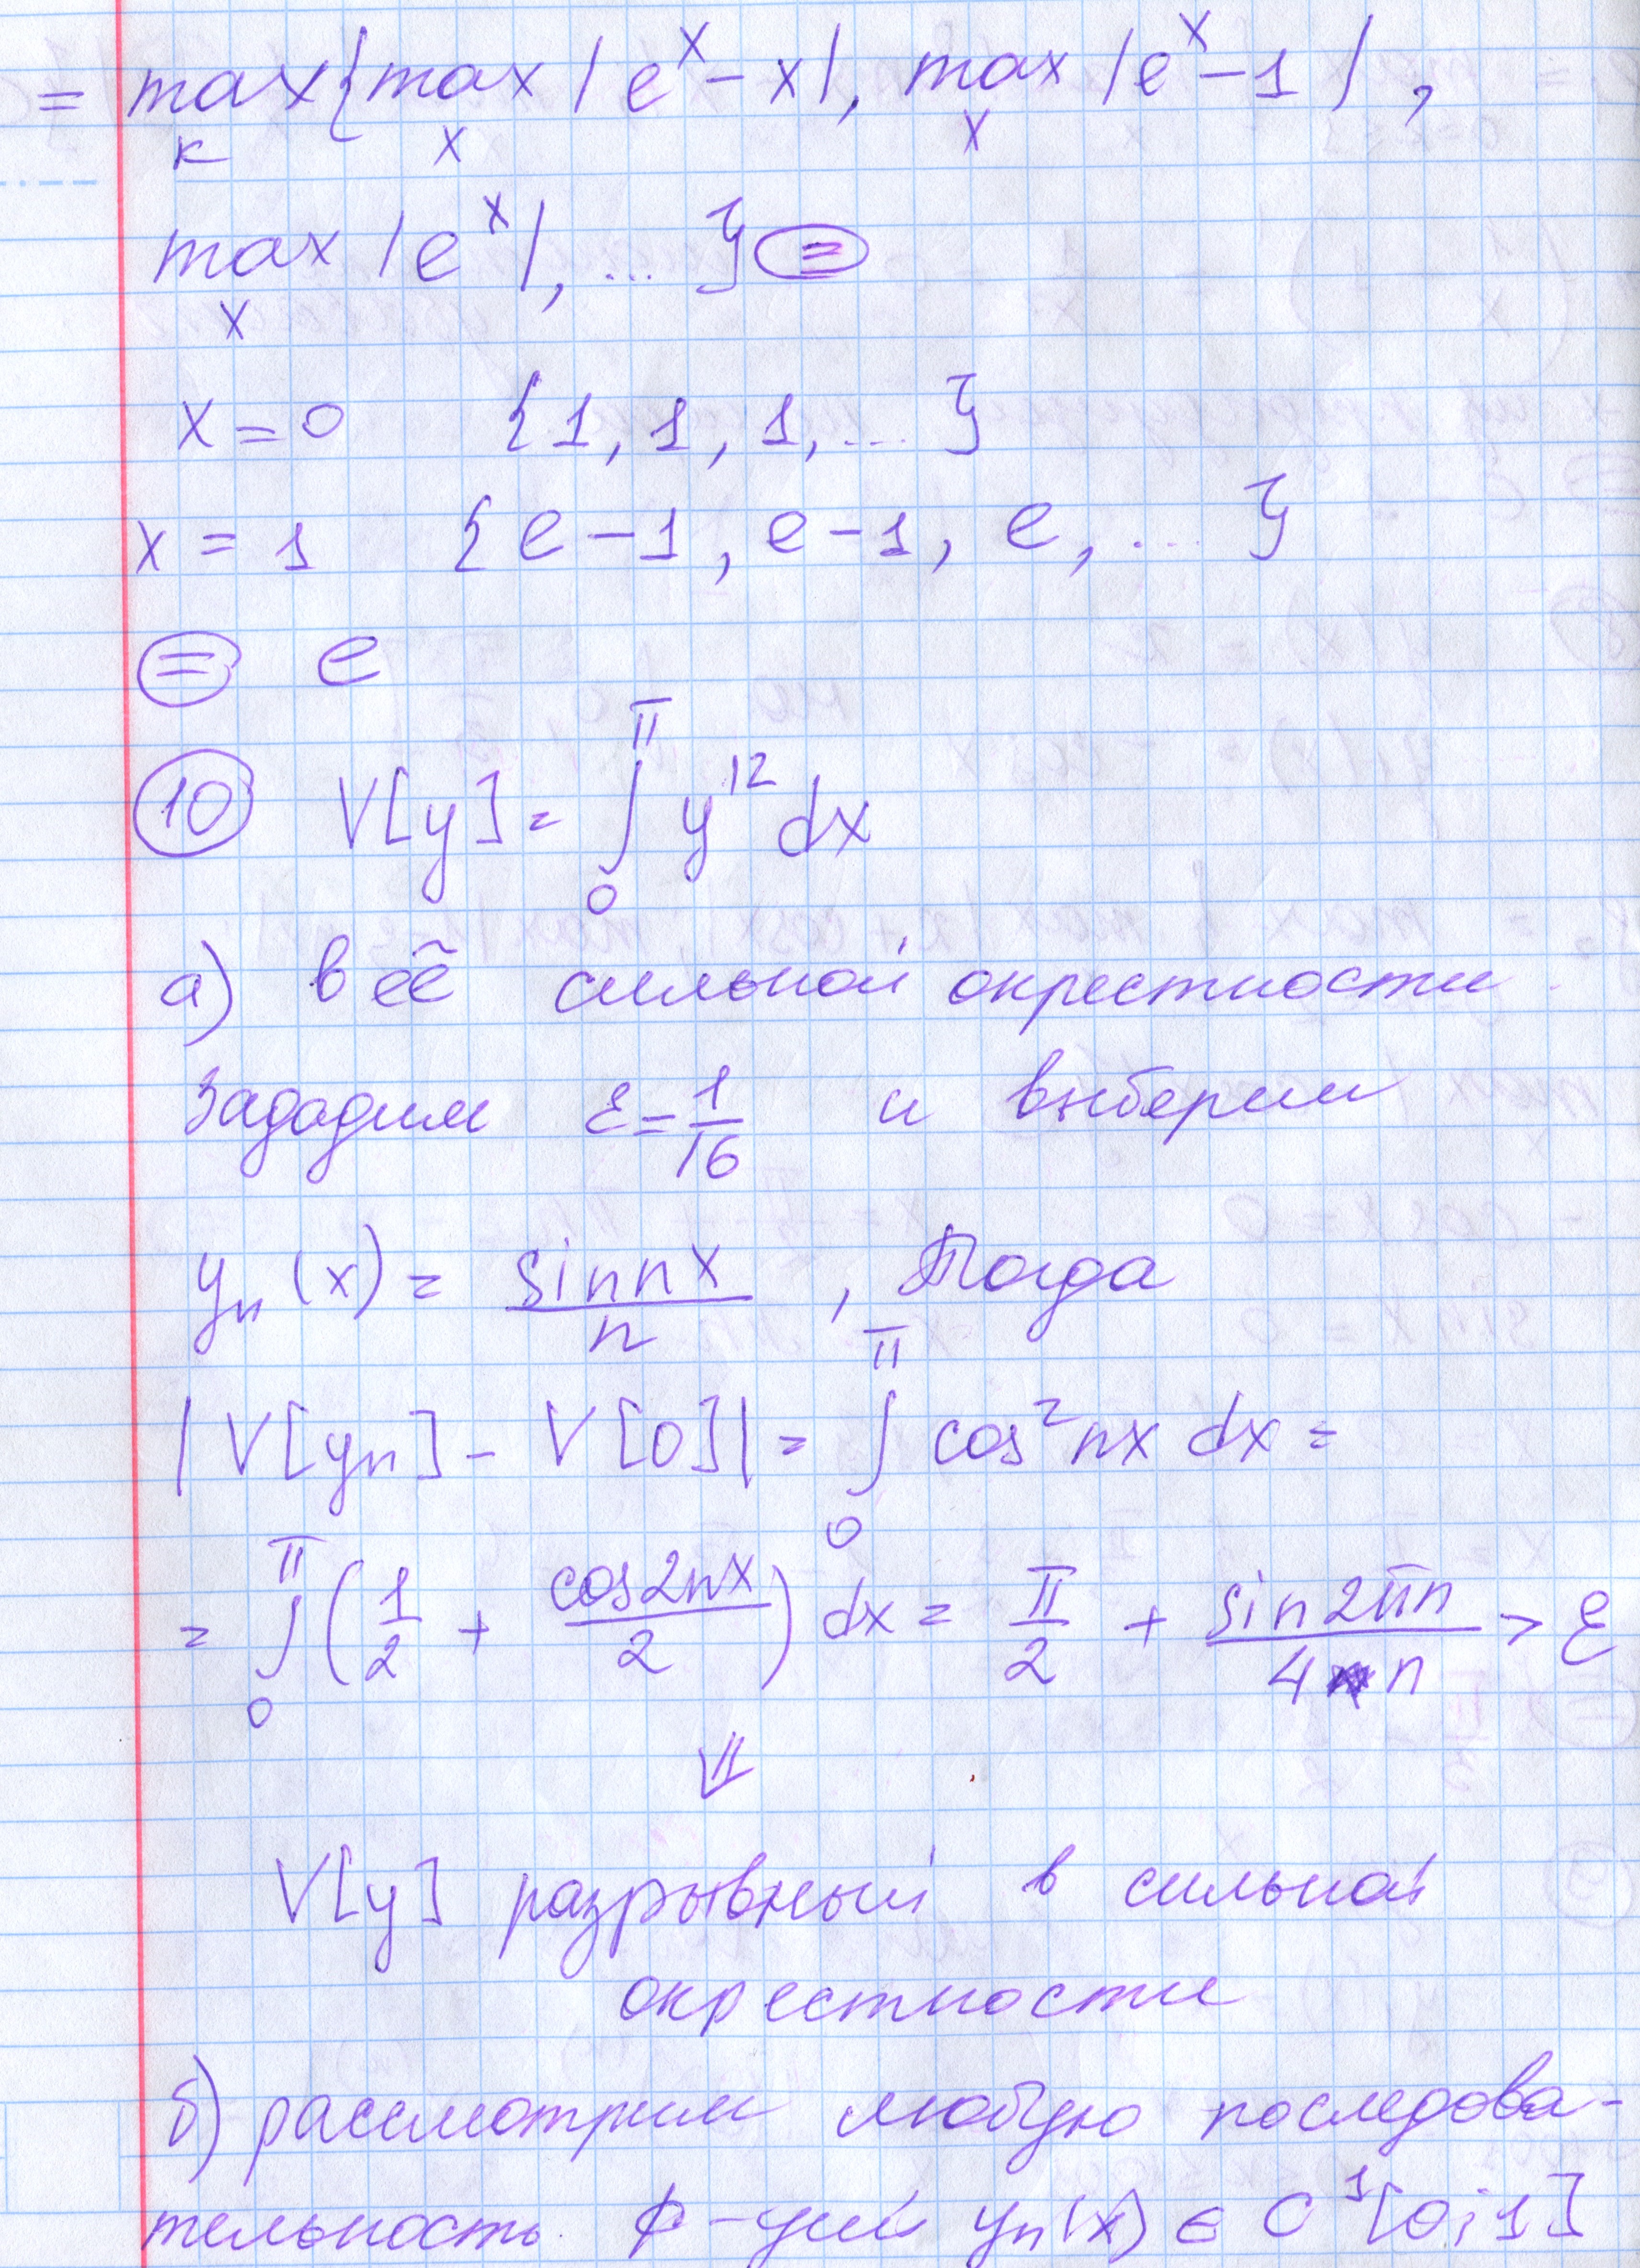 = max{max |eˣ - x|, max |eˣ - 1|,
к x x
max |eˣ|, ... } =
x
x = 0 {1, 1, 1, ... }
x = 1 {e - 1, e - 1, e, ... }
= e
10 V[y] = ∫₀^π y'² dx
а) в её сильной окрестности
Зададим ε = 1/16 и выберем
yₙ(x) = sin nx / n , Тогда
|V[yₙ] - V[0]| = ∫₀^π cos² nx dx =
= ∫₀^π (1/2 + cos 2nx / 2) dx = π/2 + sin 2πn / 4n > ε
⇓
V[y] разрывный в сильной
окрестности
б) рассмотрим любую последова-
тельность ф-ций yₙ(x) ∈ C¹[0;1]